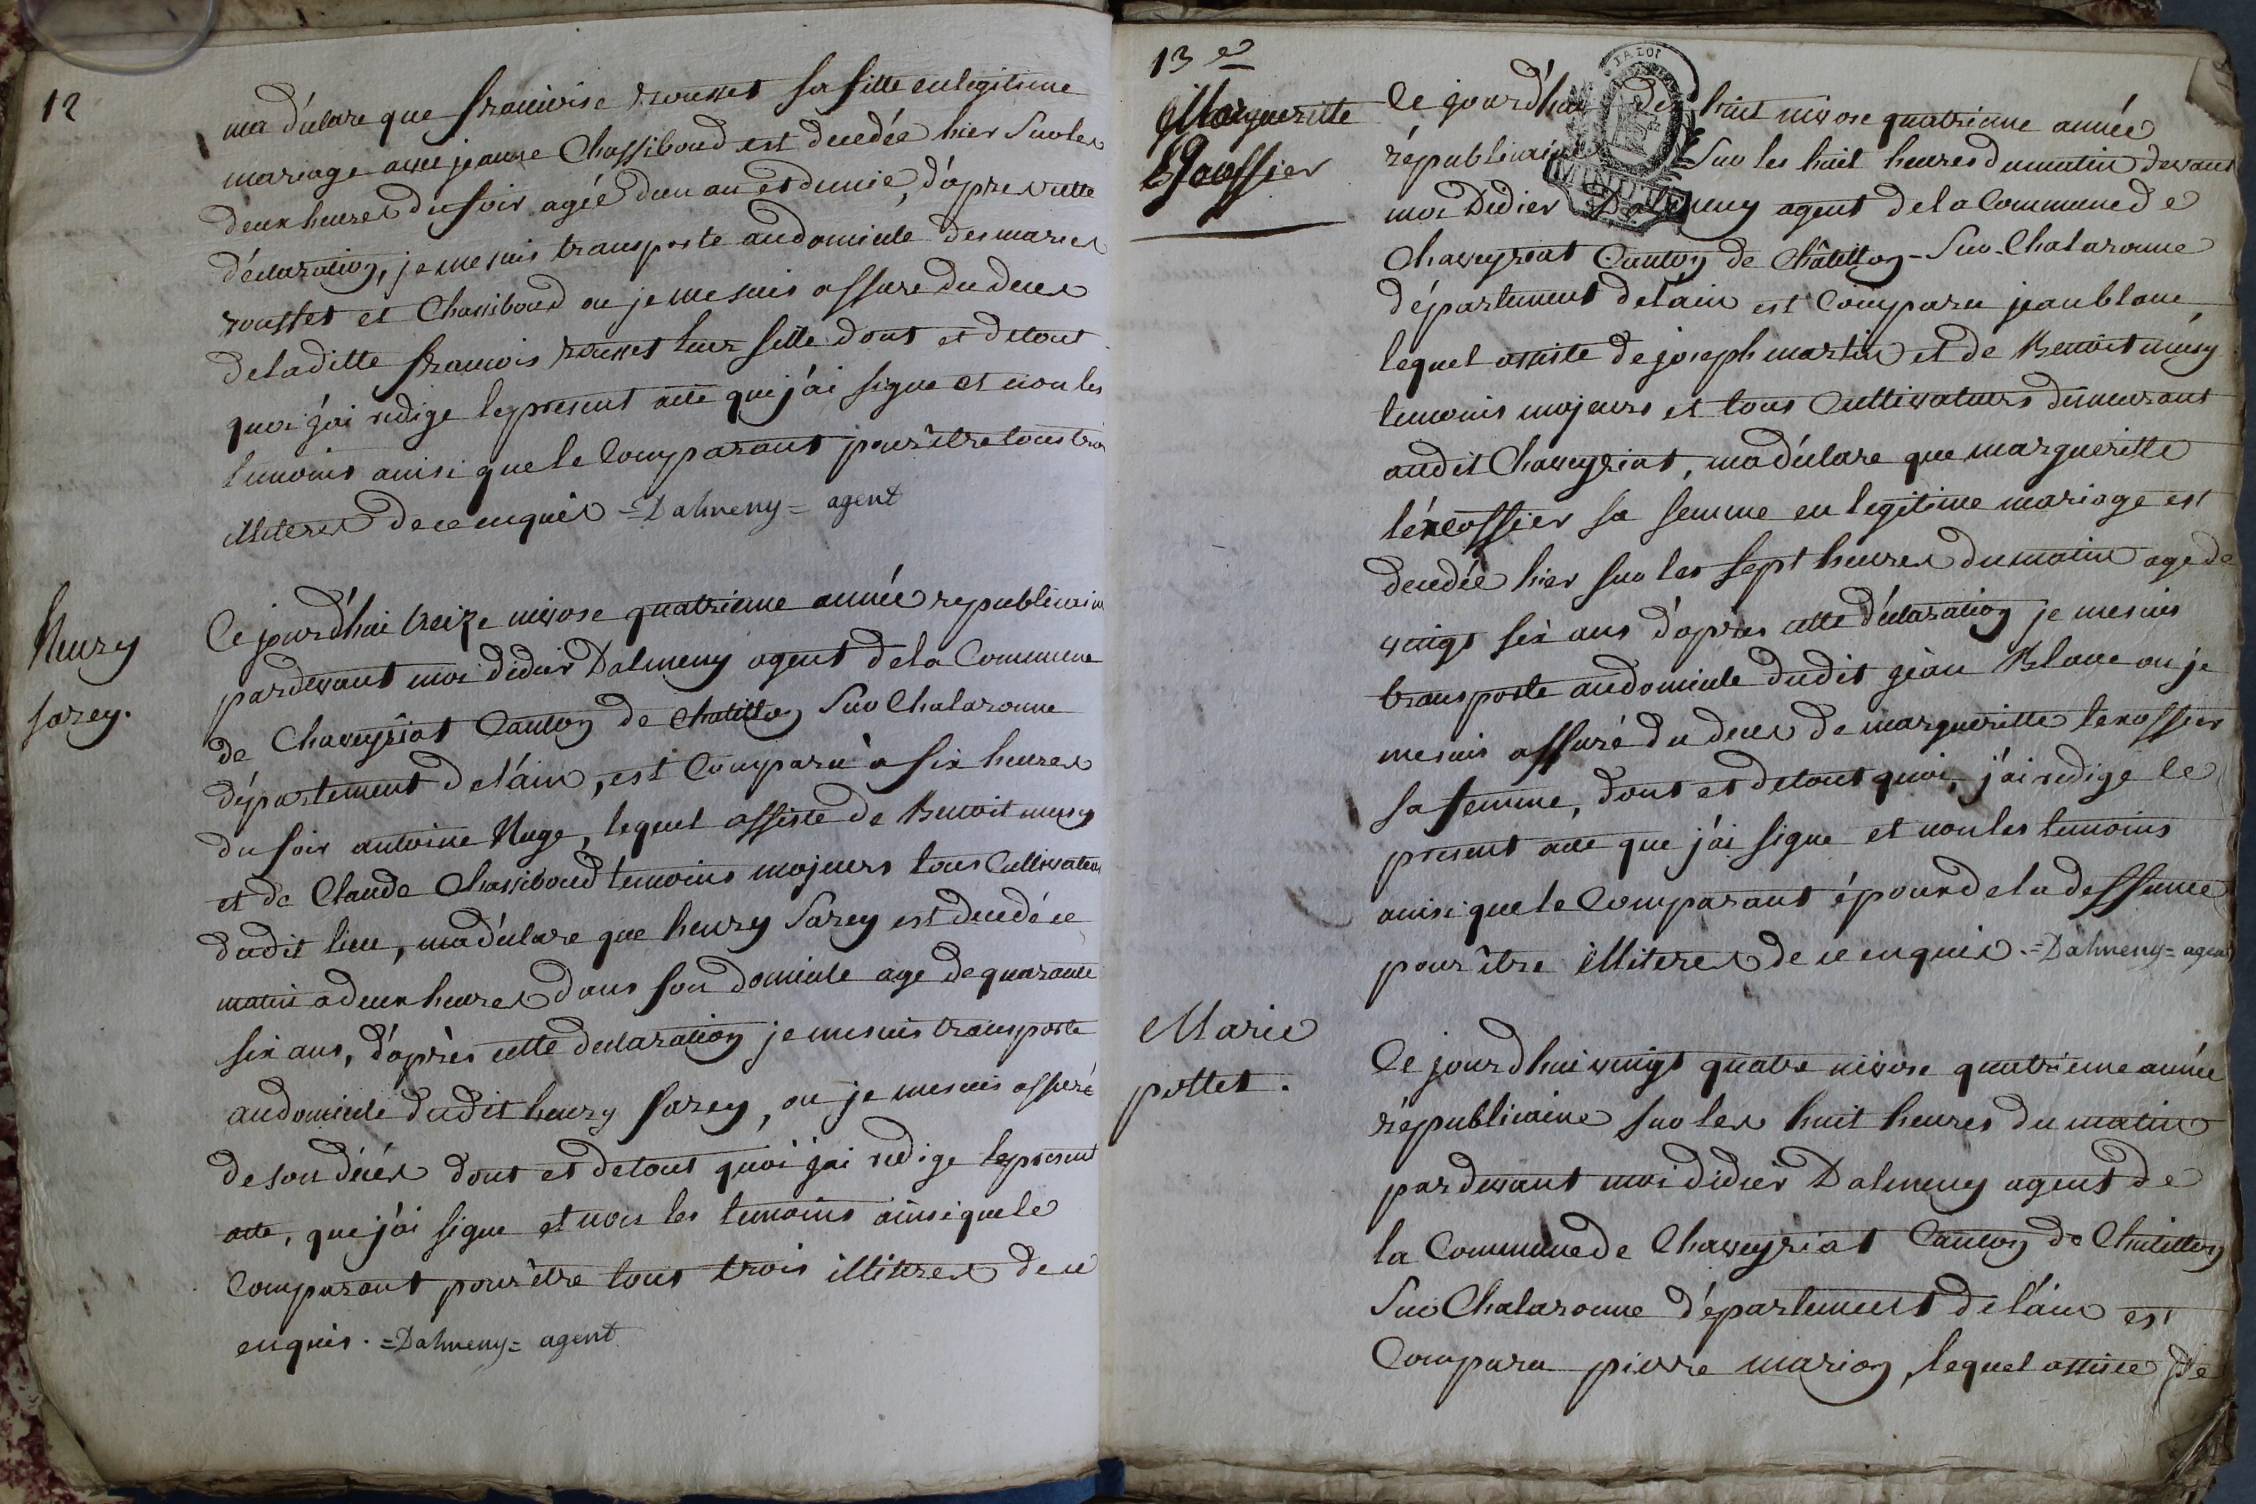 12
ma déclare que francoise rousset sa fille en legitime
mariage avec jeanne Chassiboud est decedée hier sur les
deux heures du soir agée d'un an et demie, d'apres cette
déclaration, je me suis transporte au domicile des maries
rousset et Chassiboud ou je me suis assure du deces
de la ditte francois rousset leur fille dont et de tout
quoi j'ai redige le present acte que j'ai signe et non les
temoins ainsi que le Comparant pour être tous trois
illiteres de ce enquis =Dalmeny= agent
henry
sarey.
Ce jourd'hui treize nivose quatrieme année republicaine
pardevant moi didier Dalmeny agent de la Commune
de Chaveyriat Canton de Chatillon Sur Chalaronne
département de l'ain, est Comparu à six heures
du soir antoine Nuge, lequel assiste de Benoit musy
et de Claude Chassiboud temoins majeurs tous Cultivateurs
dudit lieu, ma déclare que henry Sarey est decedé ce
matin a deux heures dans son domicile age de quarante
six ans, d'après cette declaration je me suis transporte
au domicile dudit henry sarey, ou je me suis assuré
de son décés dont et de tout quoi j'ai redige le present
acte, que j'ai signe et non les temoins ainsi que le
Comparant pour être tous trois illiteres de ce
enquis. =Dalmeny= agent
13 e
Margueritte
Ce jourd'hui dix huit nivose quatrieme année
républicaine Sur les huit heures du matin devant
moi Didier Dalmeny agent de la Commune de
Chaveyriat Canton de Châtillon-Sur-Chalaronne
département de l'ain est Comparu jean blanc
lequel assiste de joseph martin et de Benoit musy
temoins majeurs et tous Cultivateurs demeurant
audit Chaveyriat, ma déclare que margueritte
sa femme en legitime mariage est
decedée hier sur les sept heures du matin age de
vingt six ans d'après cette déclaration je me suis
transporte au domicile dudit jean Blanc ou je
me suis assuré du deces de margueritte
sa femme, dont et de tout quoi, j'ai redige le
present acte que j'ai signe et non les temoins
ainsi que le Comparant époux de la deffunte
pour être illiteres de ce enquis. =Dalmeny= agent
Marie
pottet.
Ce jourdhui vingt quatre nivose quatrieme année
républicaine sur les huit heures du matin
pardevant moi didier Dalmeny agent de
la Commune de Chaveyriat Canton de Chatillon
Sur Chalaronne département de l'ain est
Comparu pierre marion, lequel assiste de